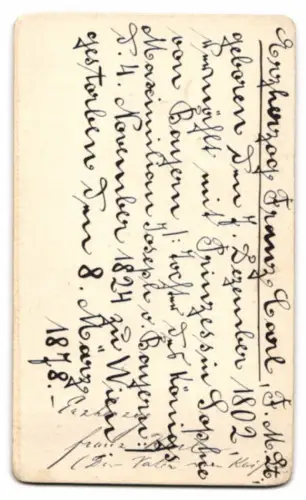 Erzherzog Franz Carl, F.M.Lt.
geboren den 7. Dezember 1802
vermählt mit Prinzessin Sophie
von Bayern /: Tochter des Königs
Maximilian Joseph v. Bayern :/
d. 4. November 1824 zu Wien
gestorben den 8. März
1878.-
Erzherzog
Franz Karl
(Der Vater von